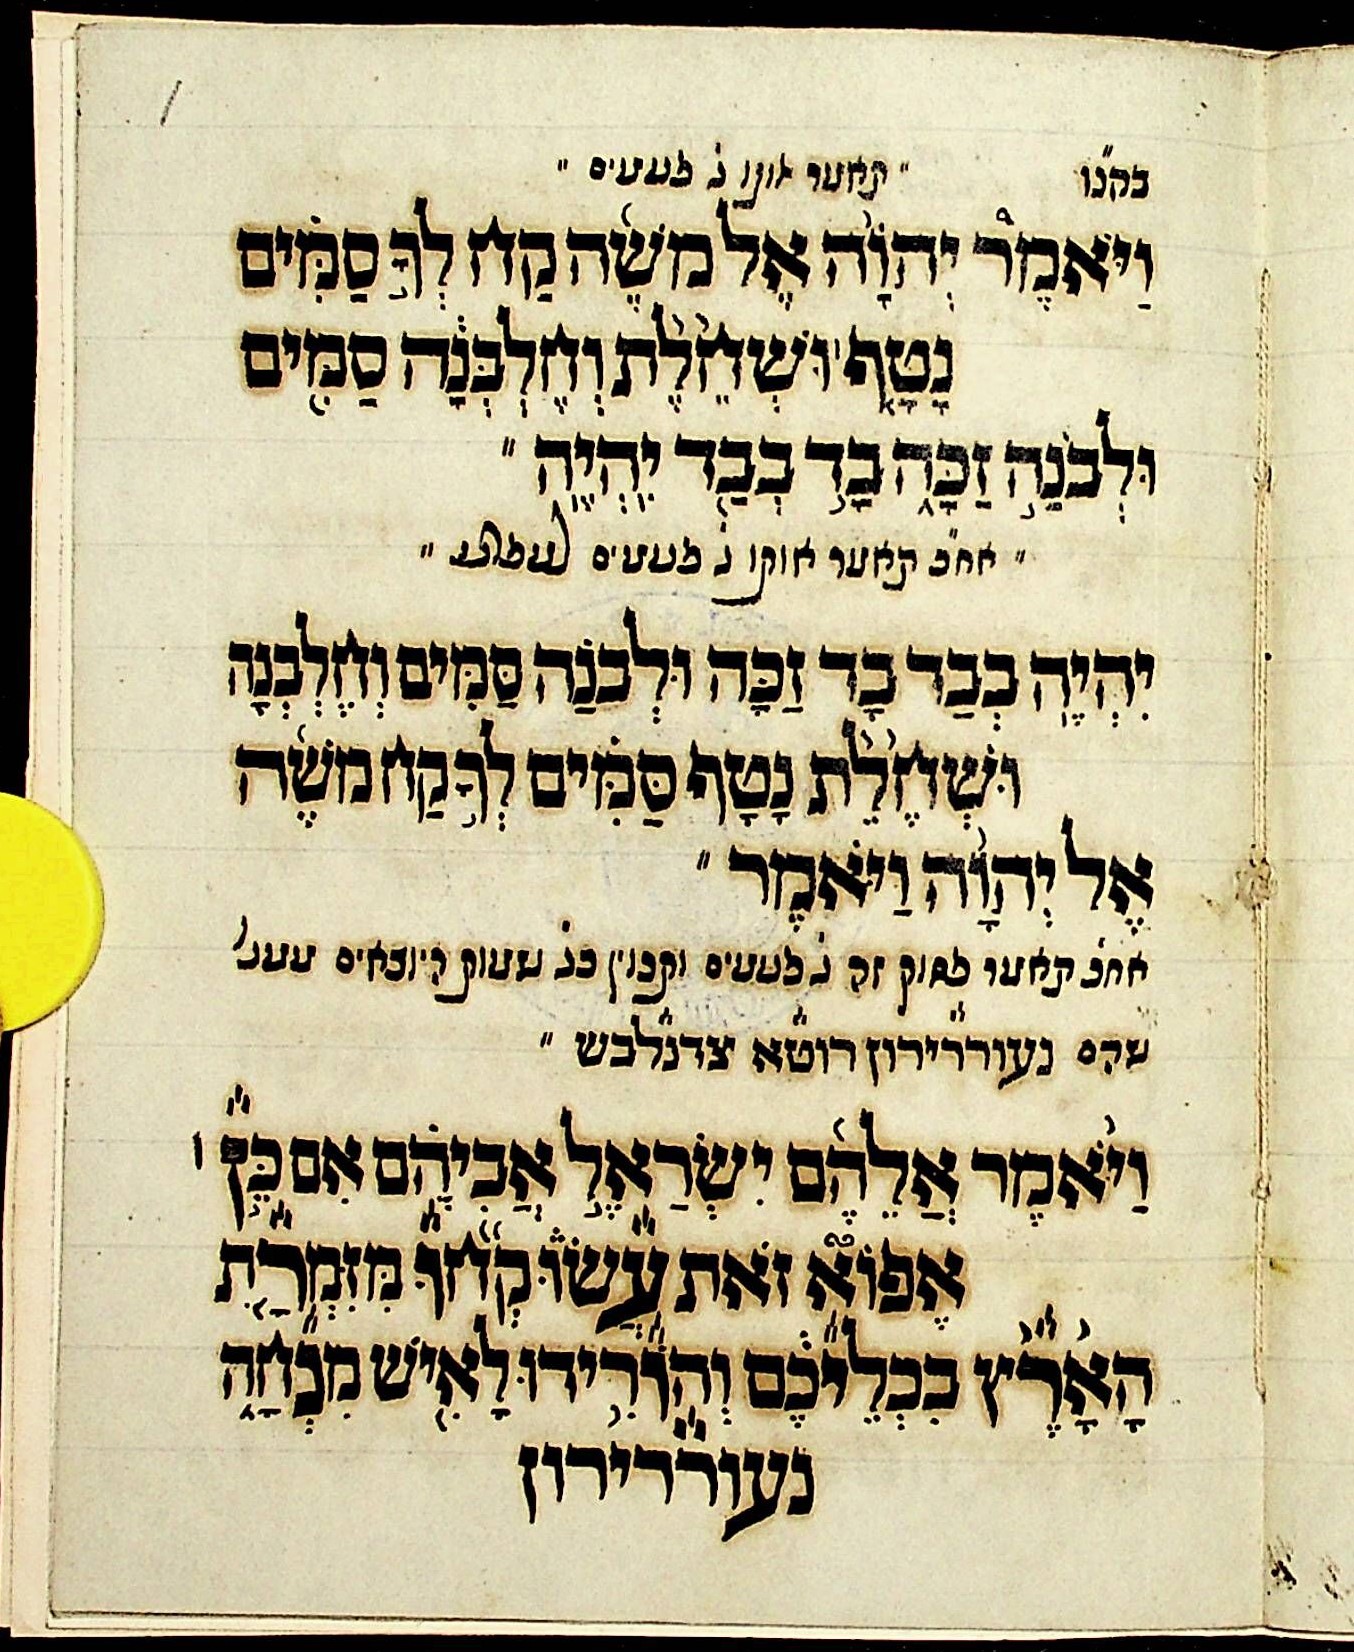 בקנ״ו " תאמר אותו ג׳ פעמים "
וַיֹּאמֶר יְהוָֹה אֶל מֹשֶׁה קַח לְךָ סַמִּים
נָטָף וּשְׁחֵלֶת וְחֶלְבְּנָה סַמִּים
וּלְבֹנָה זַכָּה בַּד בְּבַד יִהְיֶה "
" אח״כ תאמר אותו ג׳ פעמים למפרע "
יִהְיֶה בְּבַד בָּד זַכָּה וּלְבֹנָה סַמִּים וְחֶלְבְּנָה
וּשְׁחֶלֶת נָטָף סַמִּים לְךָ קַח מֹשֶׁה
אֶל יְהוָֹה וַיֹּאמֶר "
אח״כ תאמר פסוק זה ג׳ פעמים ותכוין בג׳ שמות היוצאים ממנו
שהם נעורררירון רוטא צדנלבש "
וַיֹּאמֶר אֲלֵהֶם יִשְׂרָאֵל אֲבִיהֶם אִם כֵּן
אֵפוֹא זֹאת עֲשׂוּ קְחוּ מִזִּמְרַת
הָאָרֶץ בִּכְלֵיכֶם וְהוֹרִידוּ לָאִישׁ מִנְחָה
נעורררירון